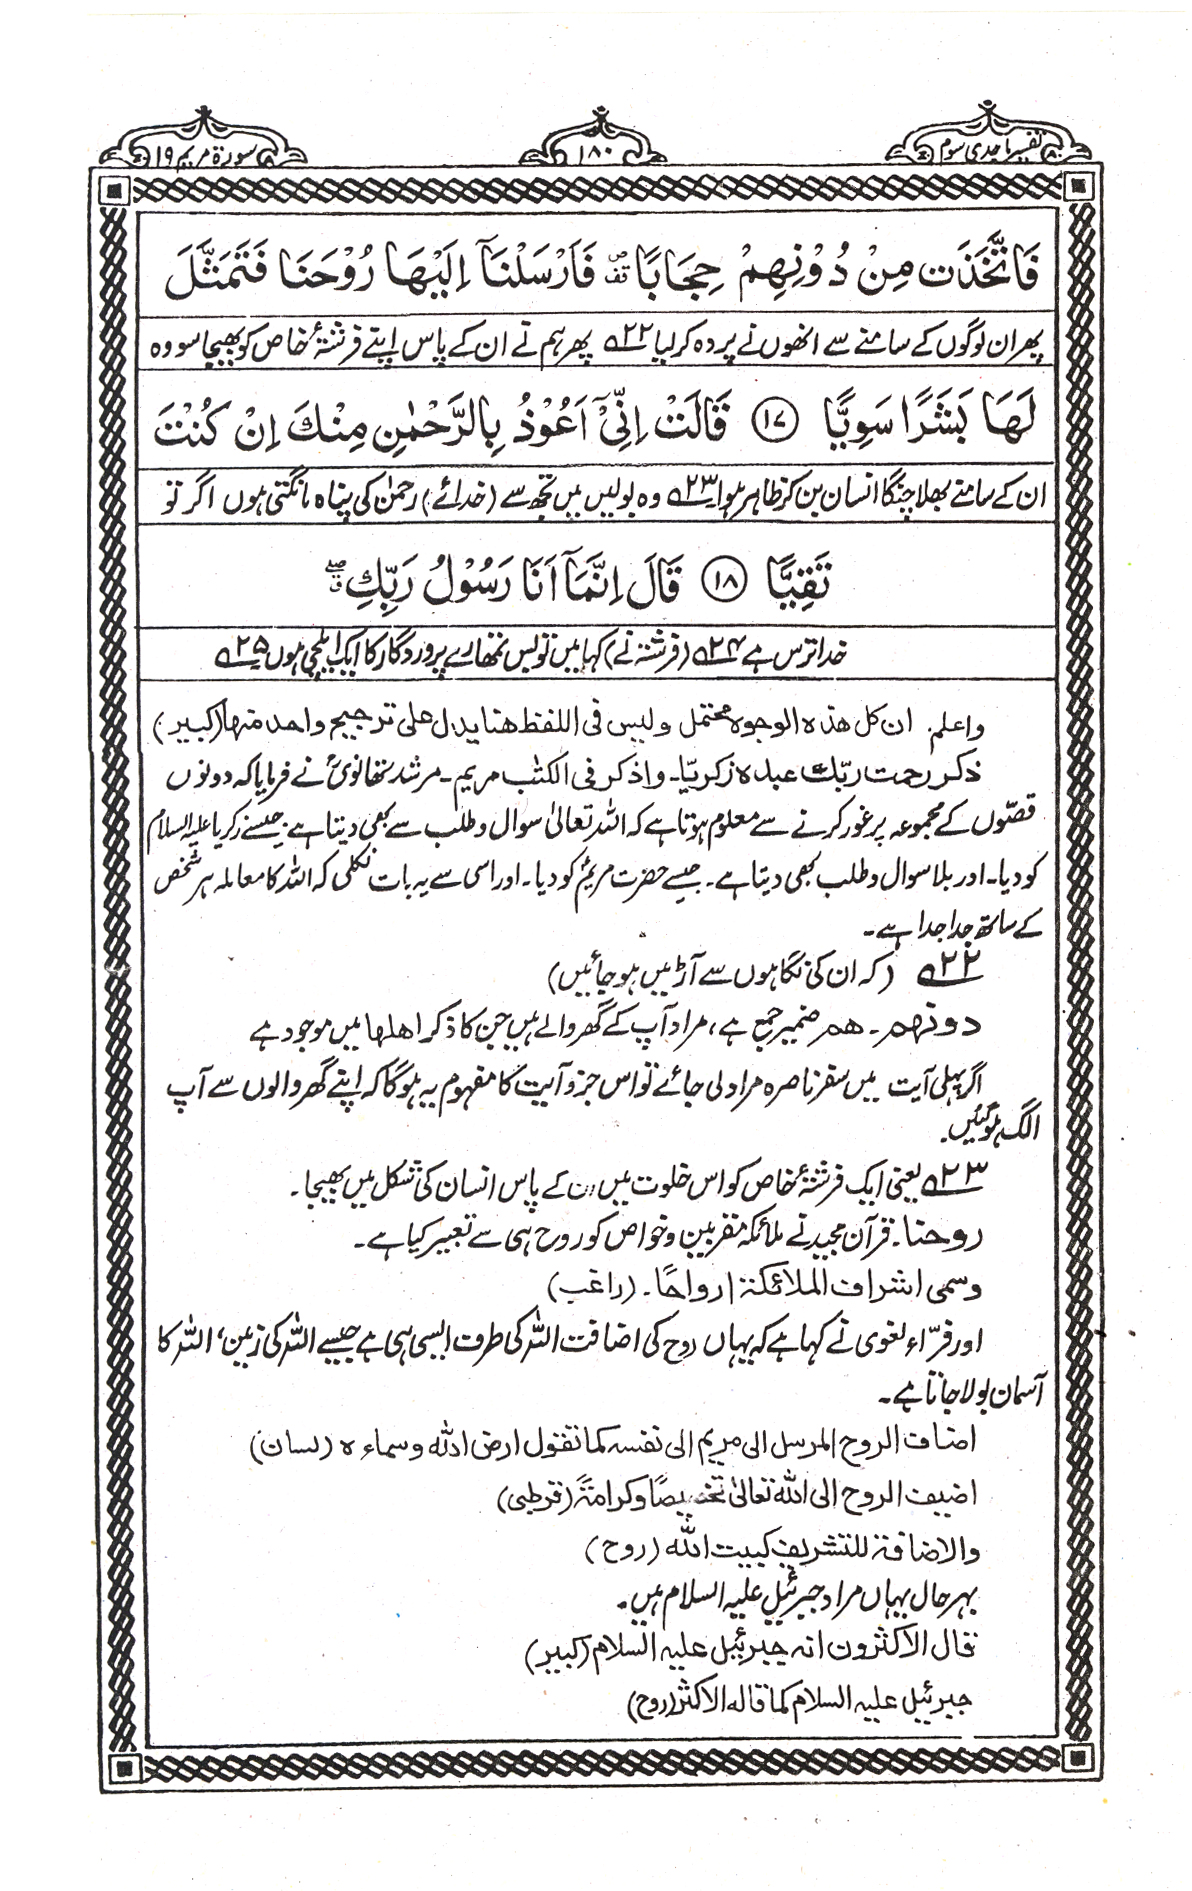 تفسیر ماجدی سوم
۱۸۰
سورۃ مریم ۱۹
فَاتَّخَذَتْ مِنْ دُوْنِهِمْ حِجَابًا قف فَاَرْسَلْنَآ اِلَيْهَا رُوْحَنَا فَتَمَثَّلَ
پھر ان لوگوں کے سامنے سے انھوں نے پردہ کرلیا ۲۲ پھر ہم نے ان کے پاس اپنے فرشتۂ خاص کو بھیجا سو وہ
لَهَا بَشَرًا سَوِيًّا ۱۷ قَالَتْ اِنِّيْٓ اَعُوْذُ بِالرَّحْمٰنِ مِنْكَ اِنْ كُنْتَ
ان کے سامنے بھلا چنگا انسان بن کر ظاہر ہوا ۲۳ وہ بولیں میں تجھ سے (خدائے) رحمن کی پناہ مانگتی ہوں اگر تو
تَقِيًّا ۱۸ قَالَ اِنَّمَآ اَنَا رَسُوْلُ رَبِّكِ
خدا ترس ہے ۲۴ (فرشتہ نے) کہا میں تو بس تمھارے پروردگار کا ایک ایلچی ہوں ۲۵
واعلم ان کل ھذہ الوجوہ محتمل ولیس فی اللفظ ھنا یدل علی ترجیح واحد منھا (کبیر)
ذکر رحمت ربّک عبدہ زکریّا۔ واذکر فی الکتٰب مریم۔ مرشد تھانویؒ نے فرمایا کہ دونوں
قصّوں کے مجموعہ پر غور کرنے سے معلوم ہوتا ہے کہ اللہ تعالیٰ سوال و طلب سے بھی دیتا ہے جیسے زکریا علیہ السلام
کو دیا۔ اور بلا سوال و طلب بھی دیتا ہے۔ جیسے حضرت مریمؑ کو دیا۔ اور اسی سے یہ بات نکلی کہ اللہ کا معاملہ ہر شخص
کے ساتھ جدا جدا ہے۔
۲۲ (کہ ان کی نگاہوں سے آڑ میں ہوجائیں)
دونھم۔ ھم ضمیر جمع ہے، مراد آپ کے گھر والے ہیں جن کا ذکر اھلھا میں موجود ہے
اگر پہلی آیت میں سفر ناصرہ مراد لی جائے تو اس جزو آیت کا مفہوم یہ ہوگا کہ اپنے گھر والوں سے آپ
الگ ہوگئیں۔
۲۳ یعنی ایک فرشتۂ خاص کو اس خلوت میں ان کے پاس انسان کی شکل میں بھیجا۔
روحنا۔ قرآن مجید نے ملائکہ مقربین و خواص کو روح ہی سے تعبیر کیا ہے۔
وسمی اشراف الملائکۃ ارواحًا۔ (راغب)
اور فرّاء لغوی نے کہا ہے کہ یہاں روح کی اضافت اللہ کی طرف ایسی ہی ہے جیسے اللہ کی زمین، اللہ کا
آسمان بولا جاتا ہے۔
اضاف الروح المرسل الی مریم الی نفسہ کما تقول ارض اللہ وسماءہ (لسان)
اضیف الروح الی اللہ تعالیٰ تخصیصًا وکرامۃً (قرطبی)
والاضافۃ للتشریف کبیت اللہ (روح)
بہرحال یہاں مراد جبرئیل علیہ السلام ہیں۔
قال الاکثرون انہ جبرئیل علیہ السلام (کبیر)
جبرئیل علیہ السلام کما قالہ الاکثر (روح)